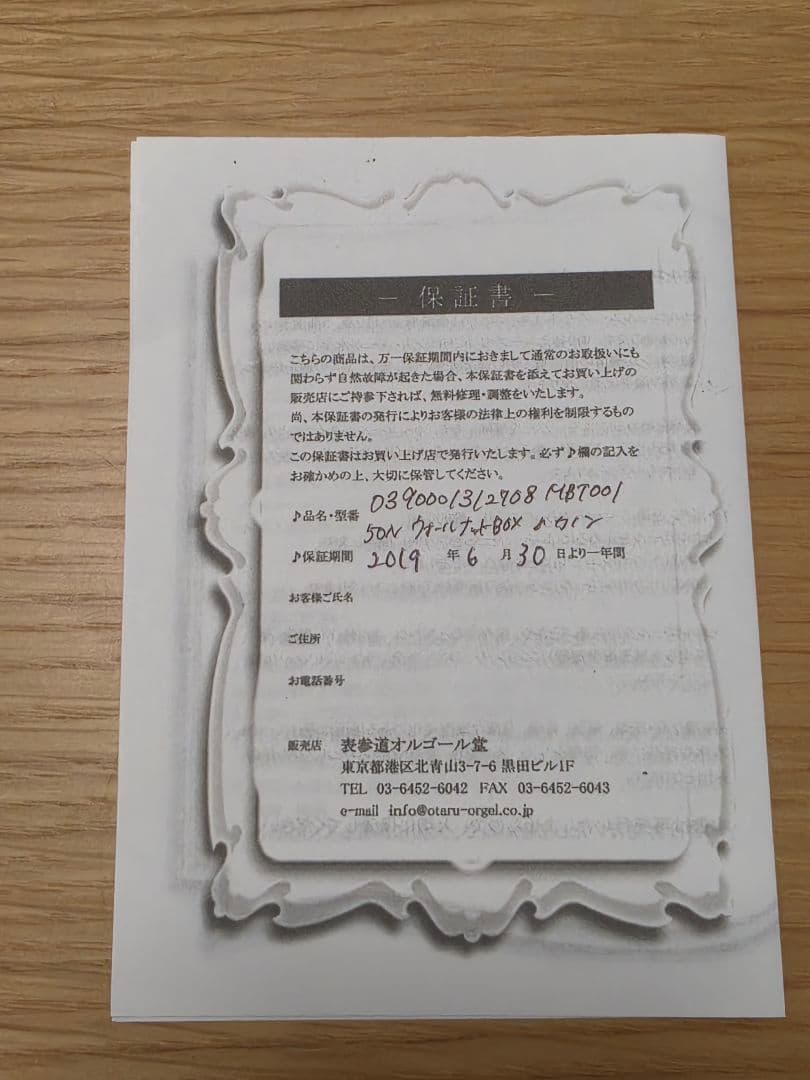 ― 保証書 ―
こちらの商品は、万一保証期間内におきまして通常のお取扱いにも
関わらず自然故障が起きた場合、本保証書を添えてお買い上げの
販売店にご持参下されば、無料修理・調整をいたします。
尚、本保証書の発行によりお客様の法律上の権利を制限するもの
ではありません。
この保証書はお買い上げ店で発行いたします。必ず♪欄の記入を
お確かめの上、大切に保管してください。
♪品名・型番 0390001312708 MBT001
50N ウォールナットBOX ♪カノン
♪保証期間 2019 年 6 月 30 日より一年間
お客様ご氏名
ご住所
お電話番号
販売店 表参道オルゴール堂
東京都港区北青山3-7-6 黒田ビル1F
TEL 03-6452-6042 FAX 03-6452-6043
e-mail info@otaru-orgel.co.jp